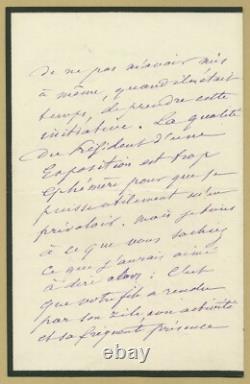 de ne pas m'avoir mis
à même, quand il était
temps, de prendre cette
initiative. La qualité
du Président d'une
Exposition est trop
éphémère pour que je
puisse utilement m'en
prévaloir. mais je tiens
à ce que vous sachiez
ce que j'aurais aimé
à dire alors: C'est
que votre fils a rendu
par son zèle, son activité
et sa fréquente présence
© 1122 t